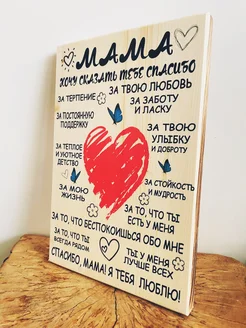 МАМА
ХОЧУ СКАЗАТЬ ТЕБЕ СПАСИБО
ЗА ТЕРПЕНИЕ
ЗА ТВОЮ ЛЮБОВЬ
ЗА ЗАБОТУ
И ЛАСКУ
ЗА ПОСТОЯННУЮ
ПОДДЕРЖКУ
ЗА ТВОЮ
УЛЫБКУ
И ДОБРОТУ
ЗА ТЕПЛОЕ
И УЮТНОЕ
ДЕТСТВО
ЗА МОЮ
ЖИЗНЬ
ЗА СТОЙКОСТЬ
И МУДРОСТЬ
ЗА ТО, ЧТО ТЫ
ЕСТЬ У МЕНЯ
ЗА ТО, ЧТО БЕСПОКОИШЬСЯ ОБО МНЕ
ЗА ТО, ЧТО ТЫ
ВСЕГДА РЯДОМ
ТЫ У МЕНЯ
ЛУЧШЕ ВСЕХ
СПАСИБО, МАМА! Я ТЕБЯ ЛЮБЛЮ!